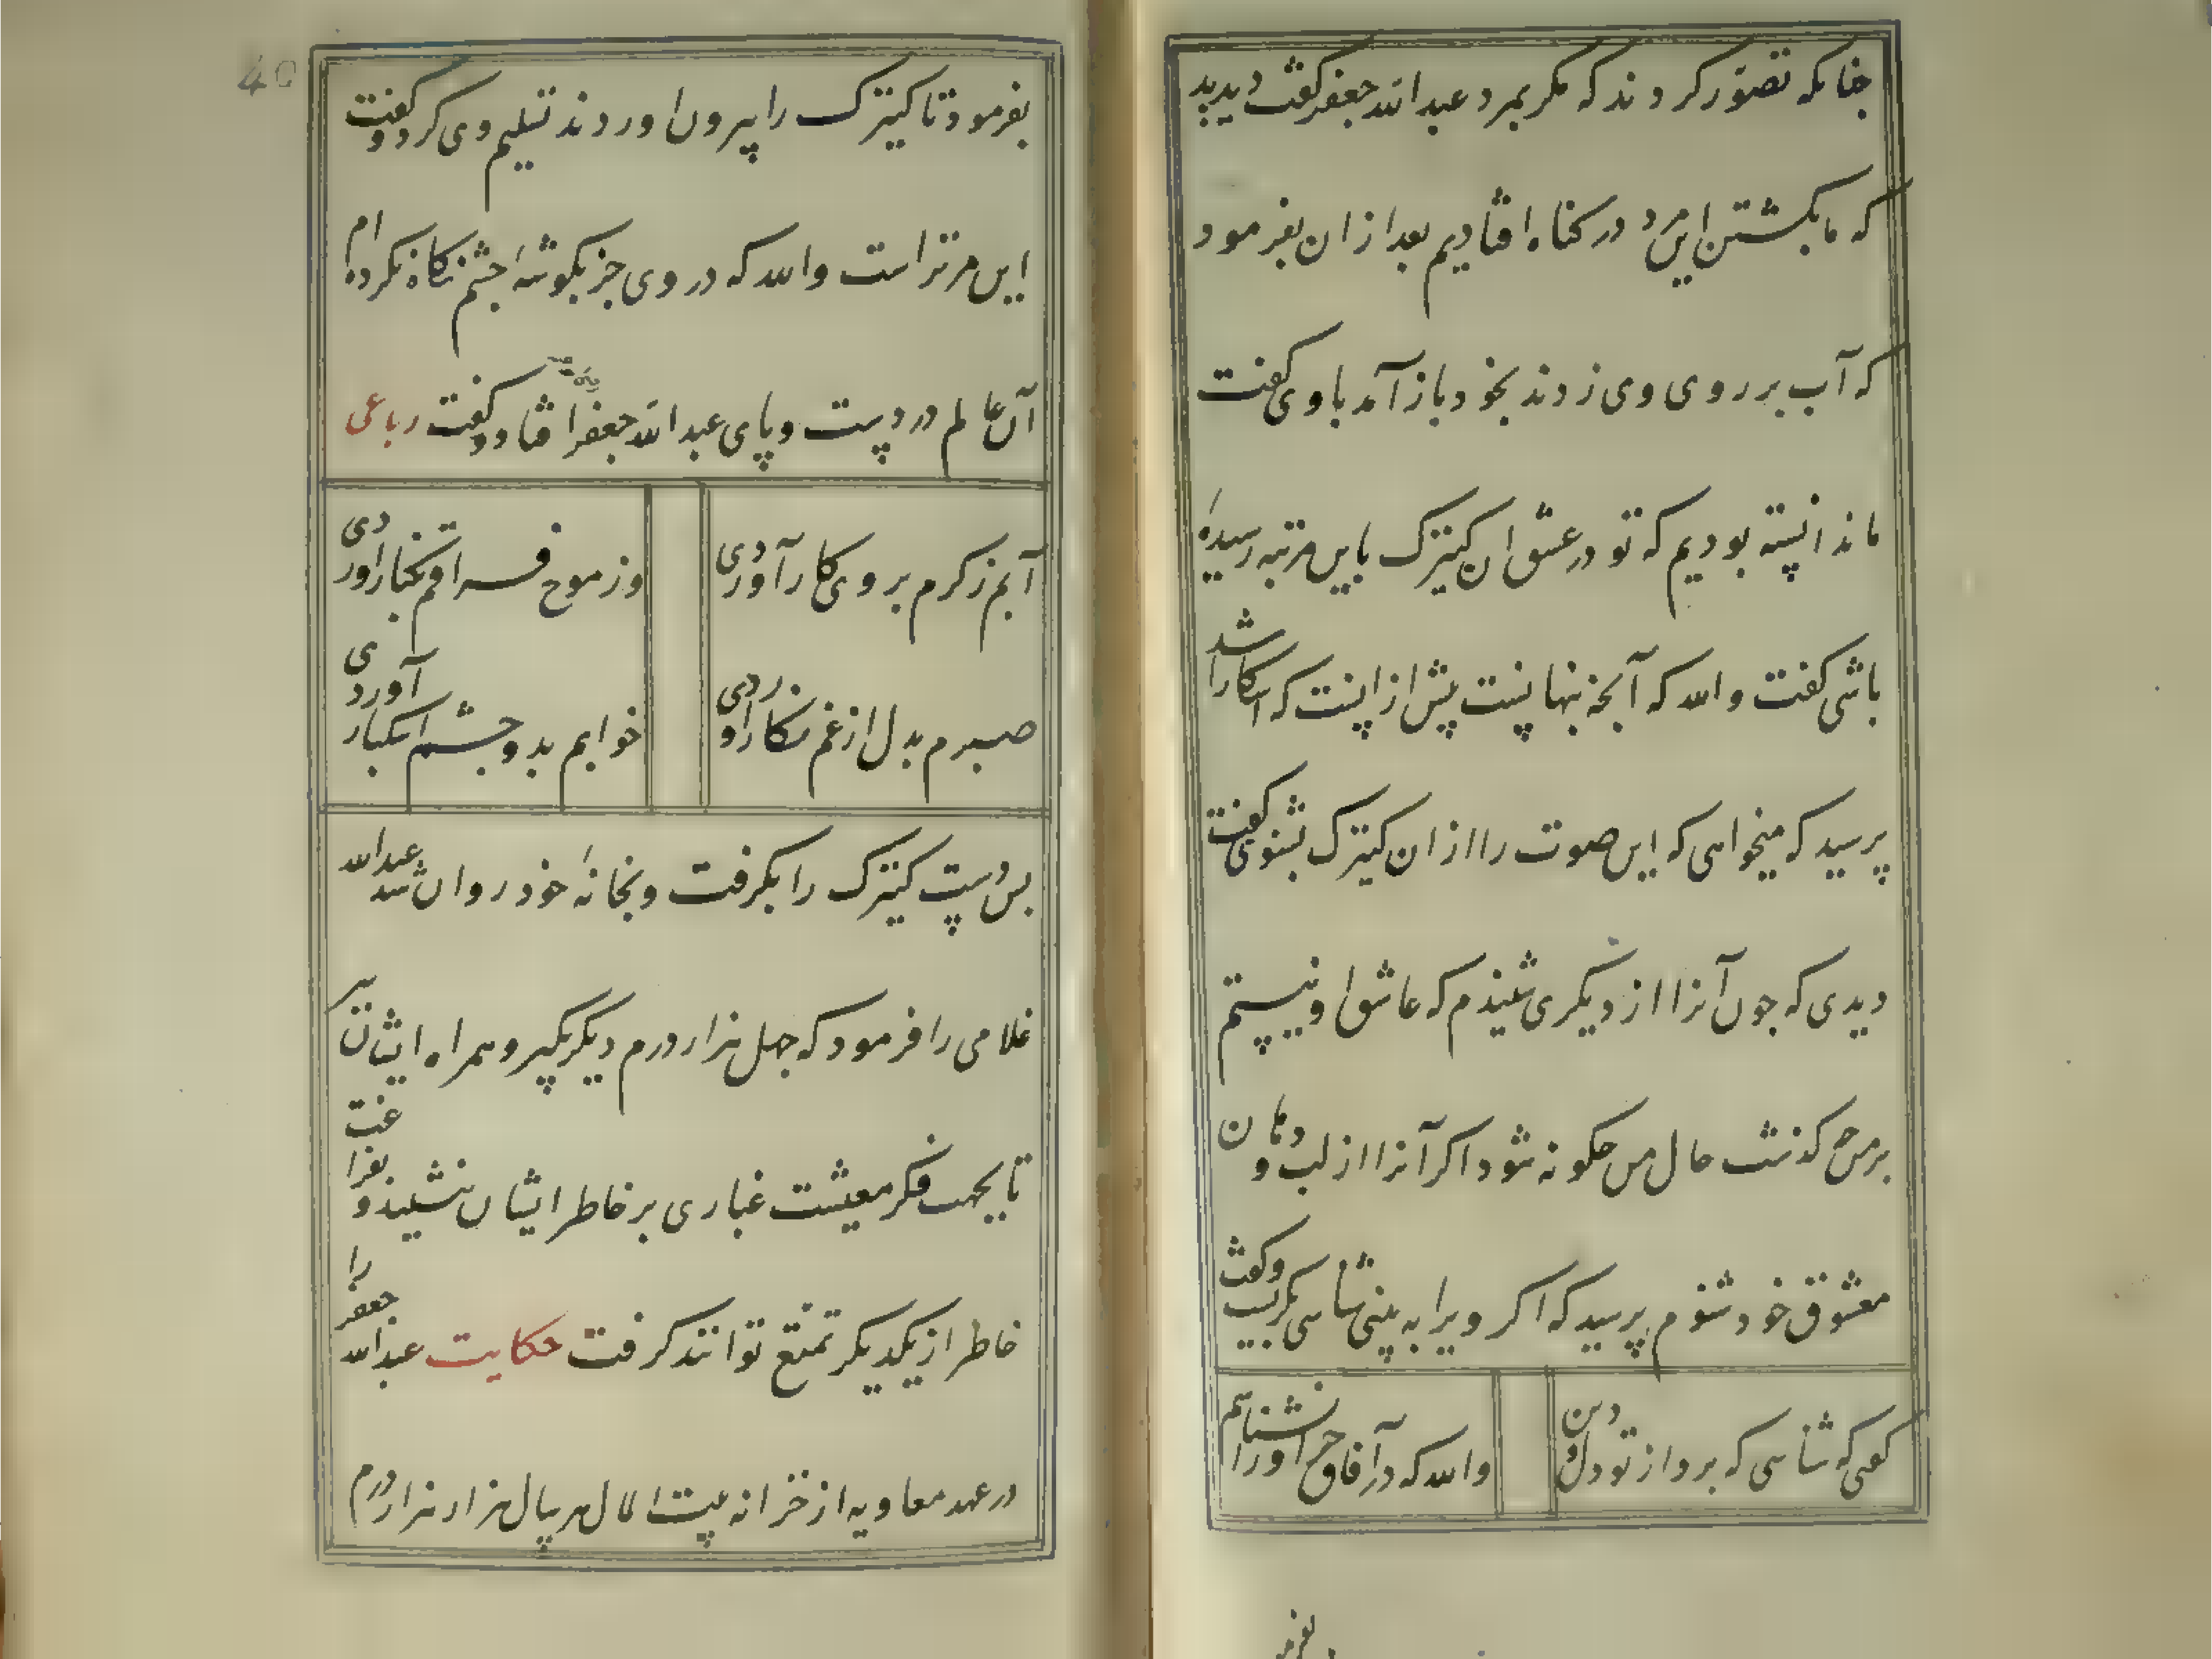 چنانکه تصوّر کردند که مگر بمرد عبد الله جعفر گفت دیدید
که ما بکشتن این مرد در گناه افتادیم بعد از ان بفرمود
که آب بر روی وی زدند بخود باز آمد با وی گفت
ما ندانسته بودیم که تو در عشق ان کنیزک باین مرتبه رسیدهٔ
باشی گفت والله که آنچه پنهانست پیش از اینست که اشکارا شد
پرسید که میخواهی که این صوت را از ان کنیزک بشنوی گفت
دیدی که چون آنرا از دیگری شنیدم که عاشق او نیستم
بر من چه گذشت حال من چگونه شود اگر آنرا از لب و دهان
معشوق خود شنوم پرسید که اگر ویرا به بینی شناسی بگریست وگفت
گویی که شناسی که برد از تو دل و دین
والله که در آفاق جز او را نشناسم
بفرمو
40
بفرمود تا کنیزک را بیرون اوردند تسلیم وی کرد و گفت
این مر تراست والله که در وی جز بگوشهٔ چشم نگاه نکرده ام
آن عالم در دست وپای عبد الله جعفر افتاد و گفت رباعی
آبم ز کرم بروی کار آوردی
وز موج فسراقم بکنار اوردی
صبرم بدل از غم نگار اوردی
خوابم بدو چشم اشکبار آوردی
پس دست کنیزک را بگرفت و بخانهٔ خود روان شد عبدالله
غلامی را فرمود که چهل هزار درم دیگر بگیر و همراه ایشان بر
تا بجهت فکر معیشت غباری بر خاطر ایشان ننشیند و بفراغت
خاطر از یکدیگر تمتّع توانند گرفت حکایت عبدالله جعفر را
در عهد معاویه از خزانه بیت المال هر سال هزار هزار درم